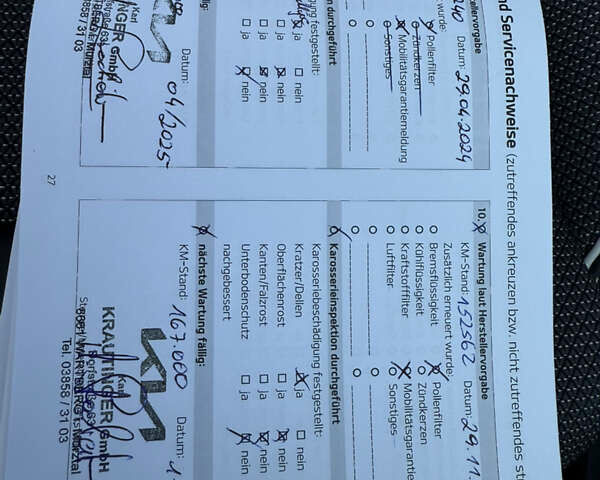 nd Servicenachweise (zutreffendes ankreuzen bzw. nicht zutreffendes st
Herstellervorgabe
240 Datum: 29.04.2024
wurde:
Pollenfilter
Zündkerzen
Mobilitätsgarantiemeldung
Sonstiges
n durchgeführt
gung festgestellt:
ja nein
ja nein
ja nein
ja nein
llig:
Datum: 04/2025
Karl
INGER GmbH
03858 / 31 03
10. Wartung laut Herstellervorgabe
KM-Stand: 152562 Datum: 29.11.
Zusätzlich erneuert wurde:
Bremsflüssigkeit Pollenfilter
Kühlflüssigkeit Zündkerzen
Kraftstofffilter Mobilitätsgarantie
Luftfilter Sonstiges
Karosserieinspektion durchgeführt
Karosseriebeschädigung festgestellt:
Kratzer/Dellen ja nein
Oberflächenrost ja nein
Kanten/Falzrost ja nein
Unterbodenschutz ja nein
nachgebessert
nächste Wartung fällig:
KM-Stand: 167.000 Datum: 1
KIA
Karl
KRAUTINGER GmbH
Tel. 03858 / 31 03
27